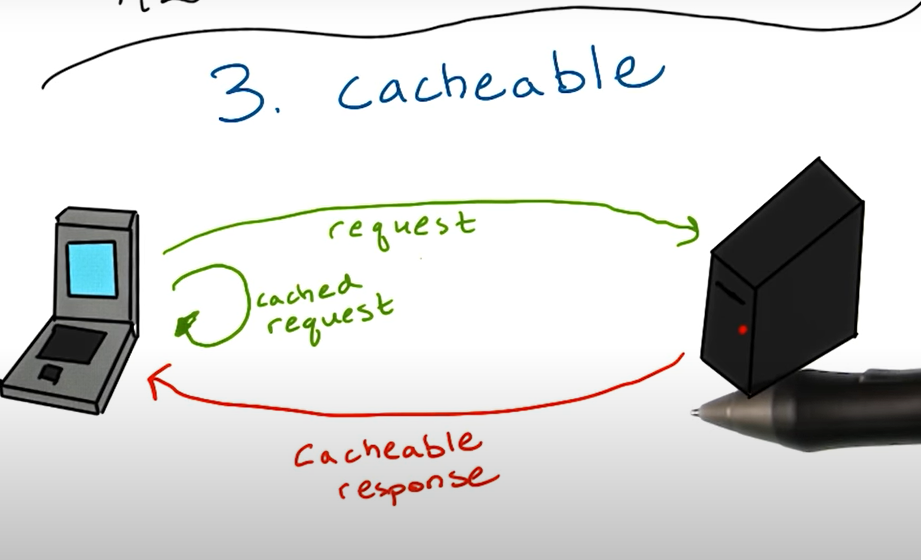 3. cacheable
request
cached
request
Cacheable
response